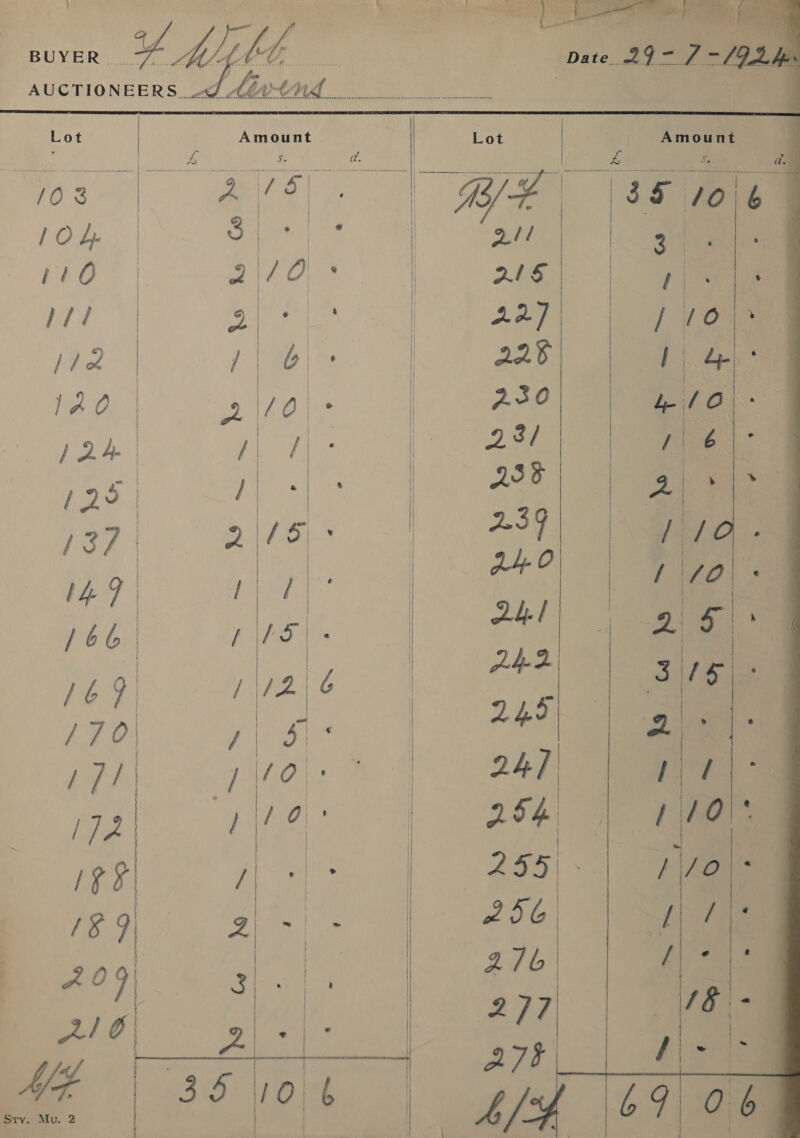 BUYER
Date 29-7-1924
AUCTIONEERS
Lot Amount
£ s. d.
103 2 15 .
104 3 . .
110 2 10 .
111 2 . .
112 1 6 .
120 2 10 .
124 1 1 .
125 1 . .
137 2 15 .
149 1 1 .
166 1 15 .
169 1 12 6
170 1 5 .
171 1 10 .
172 1 10 .
188 1 . .
189 2 - -
209 3 . .
210 2 . .
35 10 6
Srv. Mu. 2
Lot Amount
£ s. d.
B/F 35 10 6
211 3 . .
215 1 . .
227 1 10 .
228 1 4 .
230 4 10 .
231 1 6 .
238 2 . .
239 1 10 .
240 1 10 .
241 2 5 .
242 3 15 .
245 2 . .
247 1 1 .
254 1 10 .
255 1 10 .
256 1 1 .
276 1 . .
277 18 -
278 1 - -
69 0 6